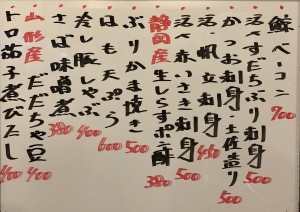 鯨ベーコン 700
活〆すだちぶり刺身 500
かつお刺身・土佐造り 500
活〆帆立刺身 450
活〆赤いさき刺身 500
静岡産 生しらすポン酢 380
ぶりかま焼き 500
はも天ぷら 600
冷し豚しゃぶ 400
さば味噌煮 380
山形産 だだちゃ豆 400
トロ茄子煮びたし 400